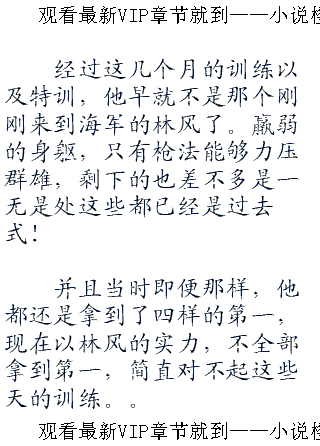 观看最新VIP章节就到——小说
经过这几个月的训练以
及特训，他早就不是那个刚
刚来到海军的林风了。羸弱
的身躯，只有枪法能够力压
群雄，剩下的也差不多是一
无是处这些都已经是过去
式！
并且当时即便那样，他
都还是拿到了四样的第一，
现在以林风的实力，不全部
拿到第一，简直对不起这些
天的训练。。
观看最新VIP章节就到——小说